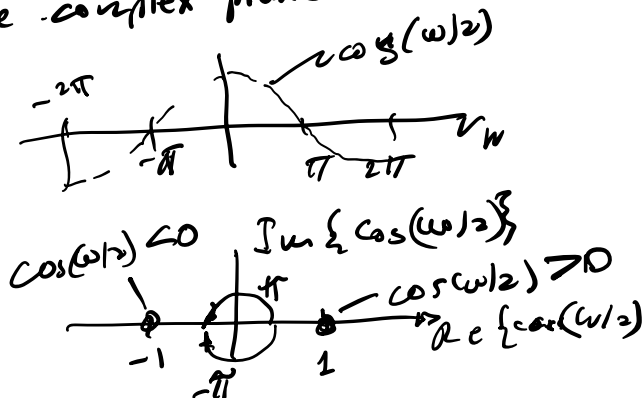 e complex plane
cos(ω/2)
-2π
-π π 2π ω
cos(ω/2) <0 Im{cos(ω/2)}
π cos(ω/2) >0
-1 1 Re{cos(ω/2)
-π